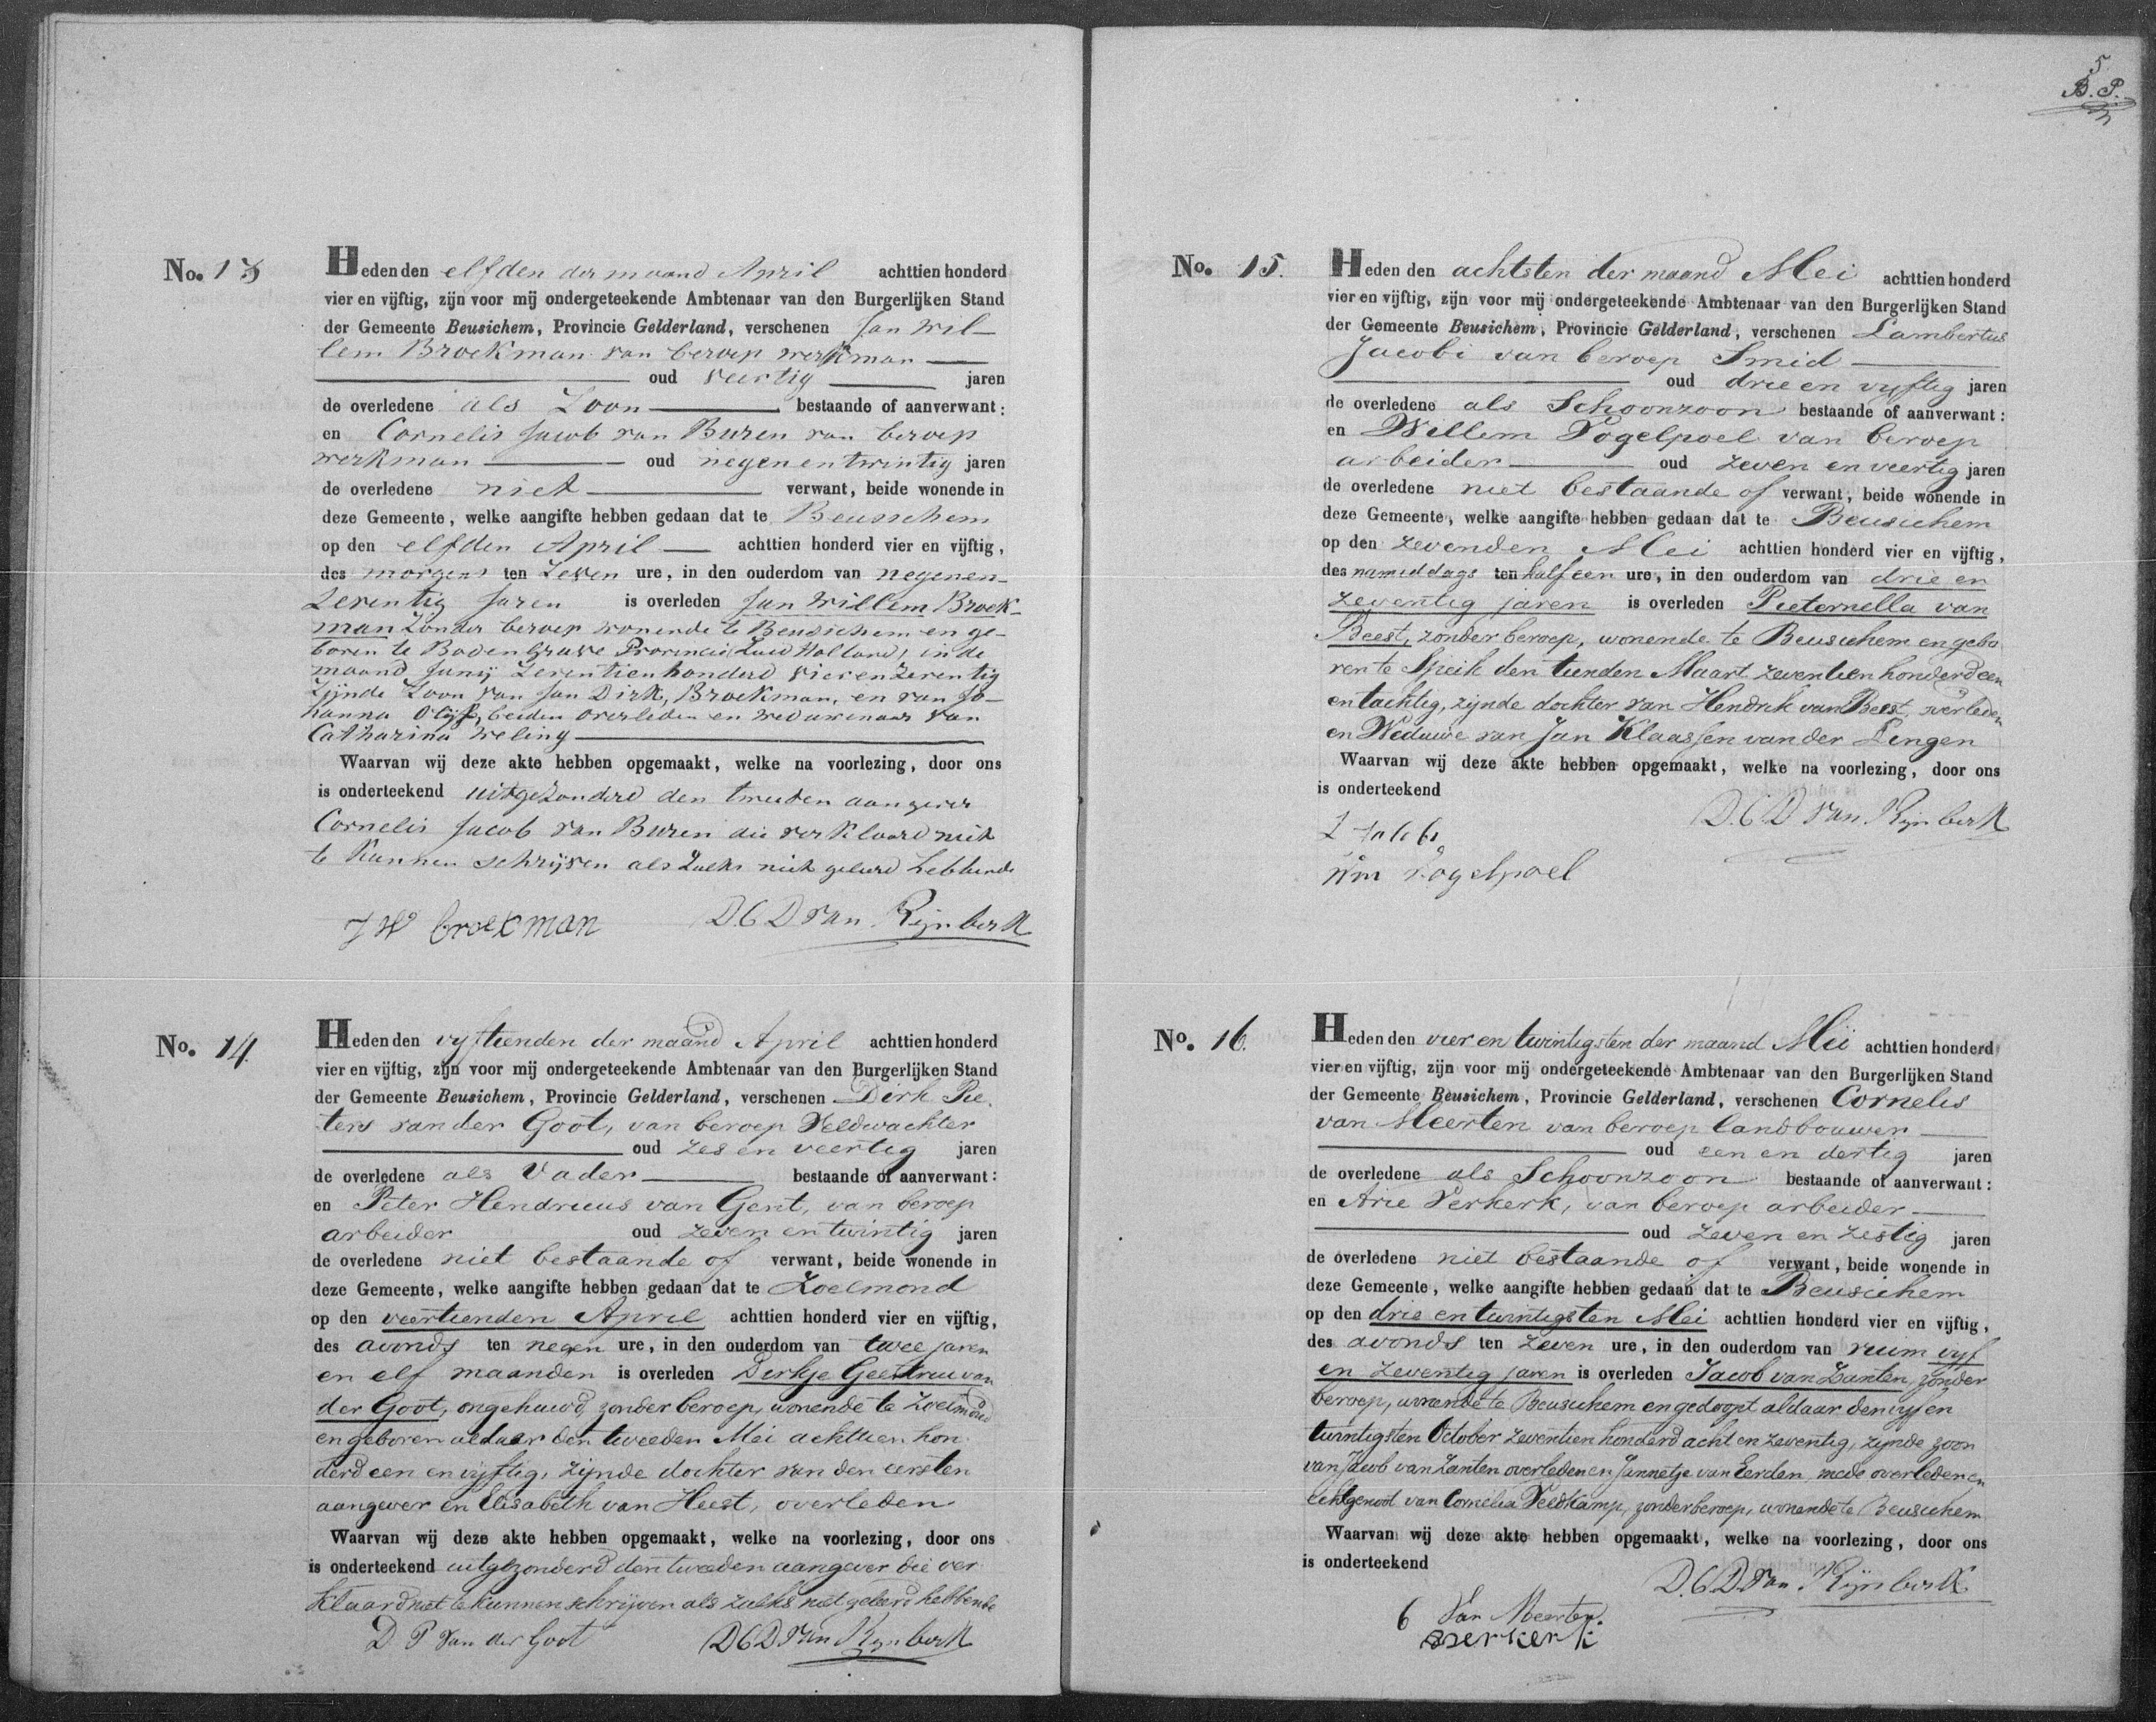 No. 13
Heden den elfden der maand April achttien honderd
vier en vijftig, zijn voor mij ondergeteekende Ambtenaar van den Burgerlijken Stand
der Gemeente Beusichem, Provincie Gelderland, verschenen Jan Wil-
lem Broekman van beroep werkman
oud veertig jaren
de overledene als Zoon bestaande of aanverwant:
en Cornelis Jacob van Buren van beroep
werkman oud negenentwintig jaren
de overledene niet verwant, beide wonende in
deze Gemeente, welke aangifte hebben gedaan dat te Beusichem
op den elfden April achttien honderd vier en vijftig,
des morgens ten Zeven ure, in den ouderdom van negenen-
Zeventig Jaren is overleden Jan Willem Broek-
man Zonder beroep wonende te Beusichem en ge-
boren te Bodengrave Provincie Zuid Holland, in de
maand Junij Zeventienhonderd vierenzeventig
Zijnde Zoon van Jan Dirk, Broekman, en van Jo-
hanna Olijf, beiden overleden en weduwenaar van
Catharina Weling
Waarvan wij deze akte hebben opgemaakt, welke na voorlezing, door ons
is onderteekend uitgezonderd den tweeden aangever
Cornelis Jacob van Buren die verklaard niet
te kunnen schrijven als zulks niet geleerd hebbende
J W broekman D.C.D van Rijnberk
No. 14.
Heden den vyftienden der maand April achttien honderd
vier en vijftig, zijn voor mij ondergeteekende Ambtenaar van den Burgerlijken Stand
der Gemeente Beusichem, Provincie Gelderland, verschenen Dirk Pie-
ters van der Goot, van beroep Veldwachter
oud zes en veertig jaren
de overledene als Vader bestaande of aanverwant:
en Peter Hendricus van Gent, van beroep
arbeider oud zeven en twintig jaren
de overledene niet bestaande of verwant, beide wonende in
deze Gemeente, welke aangifte hebben gedaan dat te Zoelmond
op den veertienden April achttien honderd vier en vijftig,
des avonds ten negen ure, in den ouderdom van twee jaren
en elf maanden is overleden Derkje Geertrui van
der Goot, ongehuwd, zonder beroep, wonende te Zoelmond
en geboren aldaar den tweeden Mei achttien hon
derd een en vijftig, zijnde dochter van den eersten
aangever en Elisabeth van Heest, overleden
Waarvan wij deze akte hebben opgemaakt, welke na voorlezing, door ons
is onderteekend uitgezonderd den tweeden aangever die ver
klaard niet te kunnen schrijven als zulks niet geleerd hebbende
D P van der Goot D C D van Rijnberk
5
B. P.
No. 15.
Heden den achtsten der maand Mei achttien honderd
vier en vijftig, zijn voor mij ondergeteekende Ambtenaar van den Burgerlijken Stand
der Gemeente Beusichem, Provincie Gelderland, verschenen Lambertus
Jacobi van beroep Smid
oud drie en vyftig jaren
de overledene als Schoonzoon bestaande of aanverwant:
en Willem Vogelpoel van beroep
arbeider oud zeven en veertig jaren
de overledene niet bestaande of verwant, beide wonende in
deze Gemeente, welke aangifte hebben gedaan dat te Beusichem
op den zevenden Mei achttien honderd vier en vijftig,
des namiddags ten half een ure, in den ouderdom van drie en
zeventig jaren is overleden Pieternella van
Beest, zonder beroep, wonende te Beusichem en gebo
ren te Speik den tienden Maart zeventien honderd een
en tachtig, zijnde dochter van Hendrik van Beest, overleden
en Weduwe van Jan Klaassen van der Lingen
Waarvan wij deze akte hebben opgemaakt, welke na voorlezing, door ons
is onderteekend
D.C.D van Rijnberk
L Jacobi
Wm Vogelpoel
No. 16.
Heden den vier en twintigsten der maand Mei achttien honderd
vier en vijftig, zijn voor mij ondergeteekende Ambtenaar van den Burgerlijken Stand
der Gemeente Beusichem, Provincie Gelderland, verschenen Cornelis
van Meerten van beroep landbouwer
oud een en dertig jaren
de overledene als Schoonzoon bestaande of aanverwant:
en Arie Verkerk, van beroep arbeider
oud zeven en zestig jaren
de overledene niet bestaande of verwant, beide wonende in
deze Gemeente, welke aangifte hebben gedaan dat te Beusichem
op den drie en twintigsten Mei achttien honderd vier en vijftig,
des avonds ten zeven ure, in den ouderdom van ruim vyf
en zeventig jaren is overleden Jacob van Zanten, zonder
beroep, wonende te Beusichem en gedoopt aldaar den vyf en
twintigsten October zeventien honderd acht en zeventig, zijnde zoon
van Jacob van Zanten overleden en Jannetje van Eerden mede overleden en
echtgenoot van Cornelia Veldkamp, zonder beroep, wonende te Beusichem
Waarvan wij deze akte hebben opgemaakt, welke na voorlezing, door ons
is onderteekend
D.C.D. van Rijnberk
C Van Meerten.
a verkerk